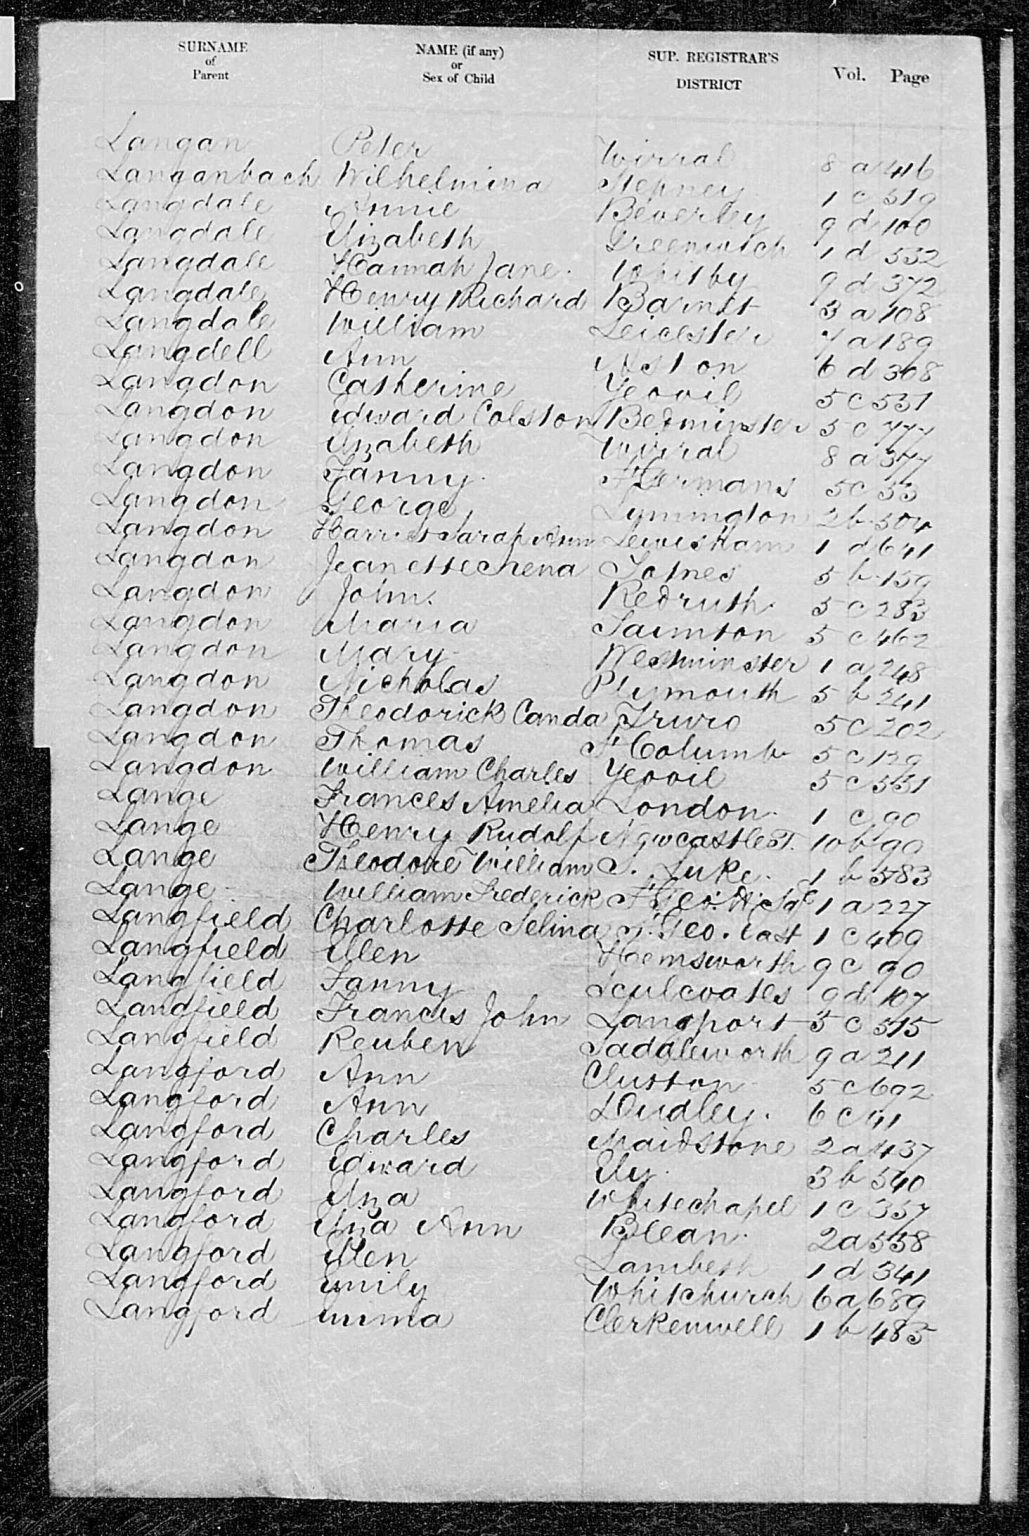 SURNAME of Parent NAME (if any) or Sex of Child SUP. REGISTRAR'S DISTRICT Vol. Page
Langan Peter Wirral 8 a 416
Langanbach Wilhelmina Stepney 1 c 519
Langdale Annie Beverley 9 d 100
Langdale Elizabeth Greenwich 1 d 532
Langdale Hannah Jane. Whitby 9 d 372
Langdale Henry Richard Barnet 3 a 108
Langdale William Leicester 7 a 189
Langdell Ann Aston 6 d 308
Langdon Catherine Yeovil 5 c 531
Langdon Edward Colston Bedminster 5 c 777
Langdon Elizabeth Wirral 8 a 377
Langdon Fanny. St Germans 5 c 53
Langdon George Lymington 2 b 504
Langdon Harriet Sarah Ann Lewisham 1 d 641
Langdon Jeanette Totnes 5 b 159
Langdon John. Redruth. 5 c 283
Langdon Maria Taunton 5 c 462
Langdon Mary Westminster 1 a 248
Langdon Nicholas Plymouth 5 b 241
Langdon Theodorick Canda Truro 5 c 202
Langdon Thomas St Columb 5 c 129
Langdon William Charles Yeovil 5 c 531
Lange Frances Amelia London. 1 c 90
Lange Henry Rudolf Newcastle T. 10 b 90
Lange Theodore William S. Luke. 1 b 583
Lange William Frederick St Geo. H. Sqe 1 a 227
Langfield Charlotte Selina St. Geo. East 1 c 409
Langfield Ellen Hemsworth 9 c 90
Langfield Fanny Sculcoates 9 d 107
Langfield Francis John Langport 5 c 515
Langfield Reuben Saddleworth 9 a 211
Langford Ann Clutton 5 c 692
Langford Ann Dudley. 6 c 41
Langford Charles Maidstone 2 a 437
Langford Edward Ely. 3 b 540
Langford Eliza Whitechapel 1 c 357
Langford Eliza Ann Blean. 2 a 558
Langford Ellen Lambeth 1 d 341
Langford Emily Whitchurch 6 a 689
Langford Emma Clerkenwell 1 b 483